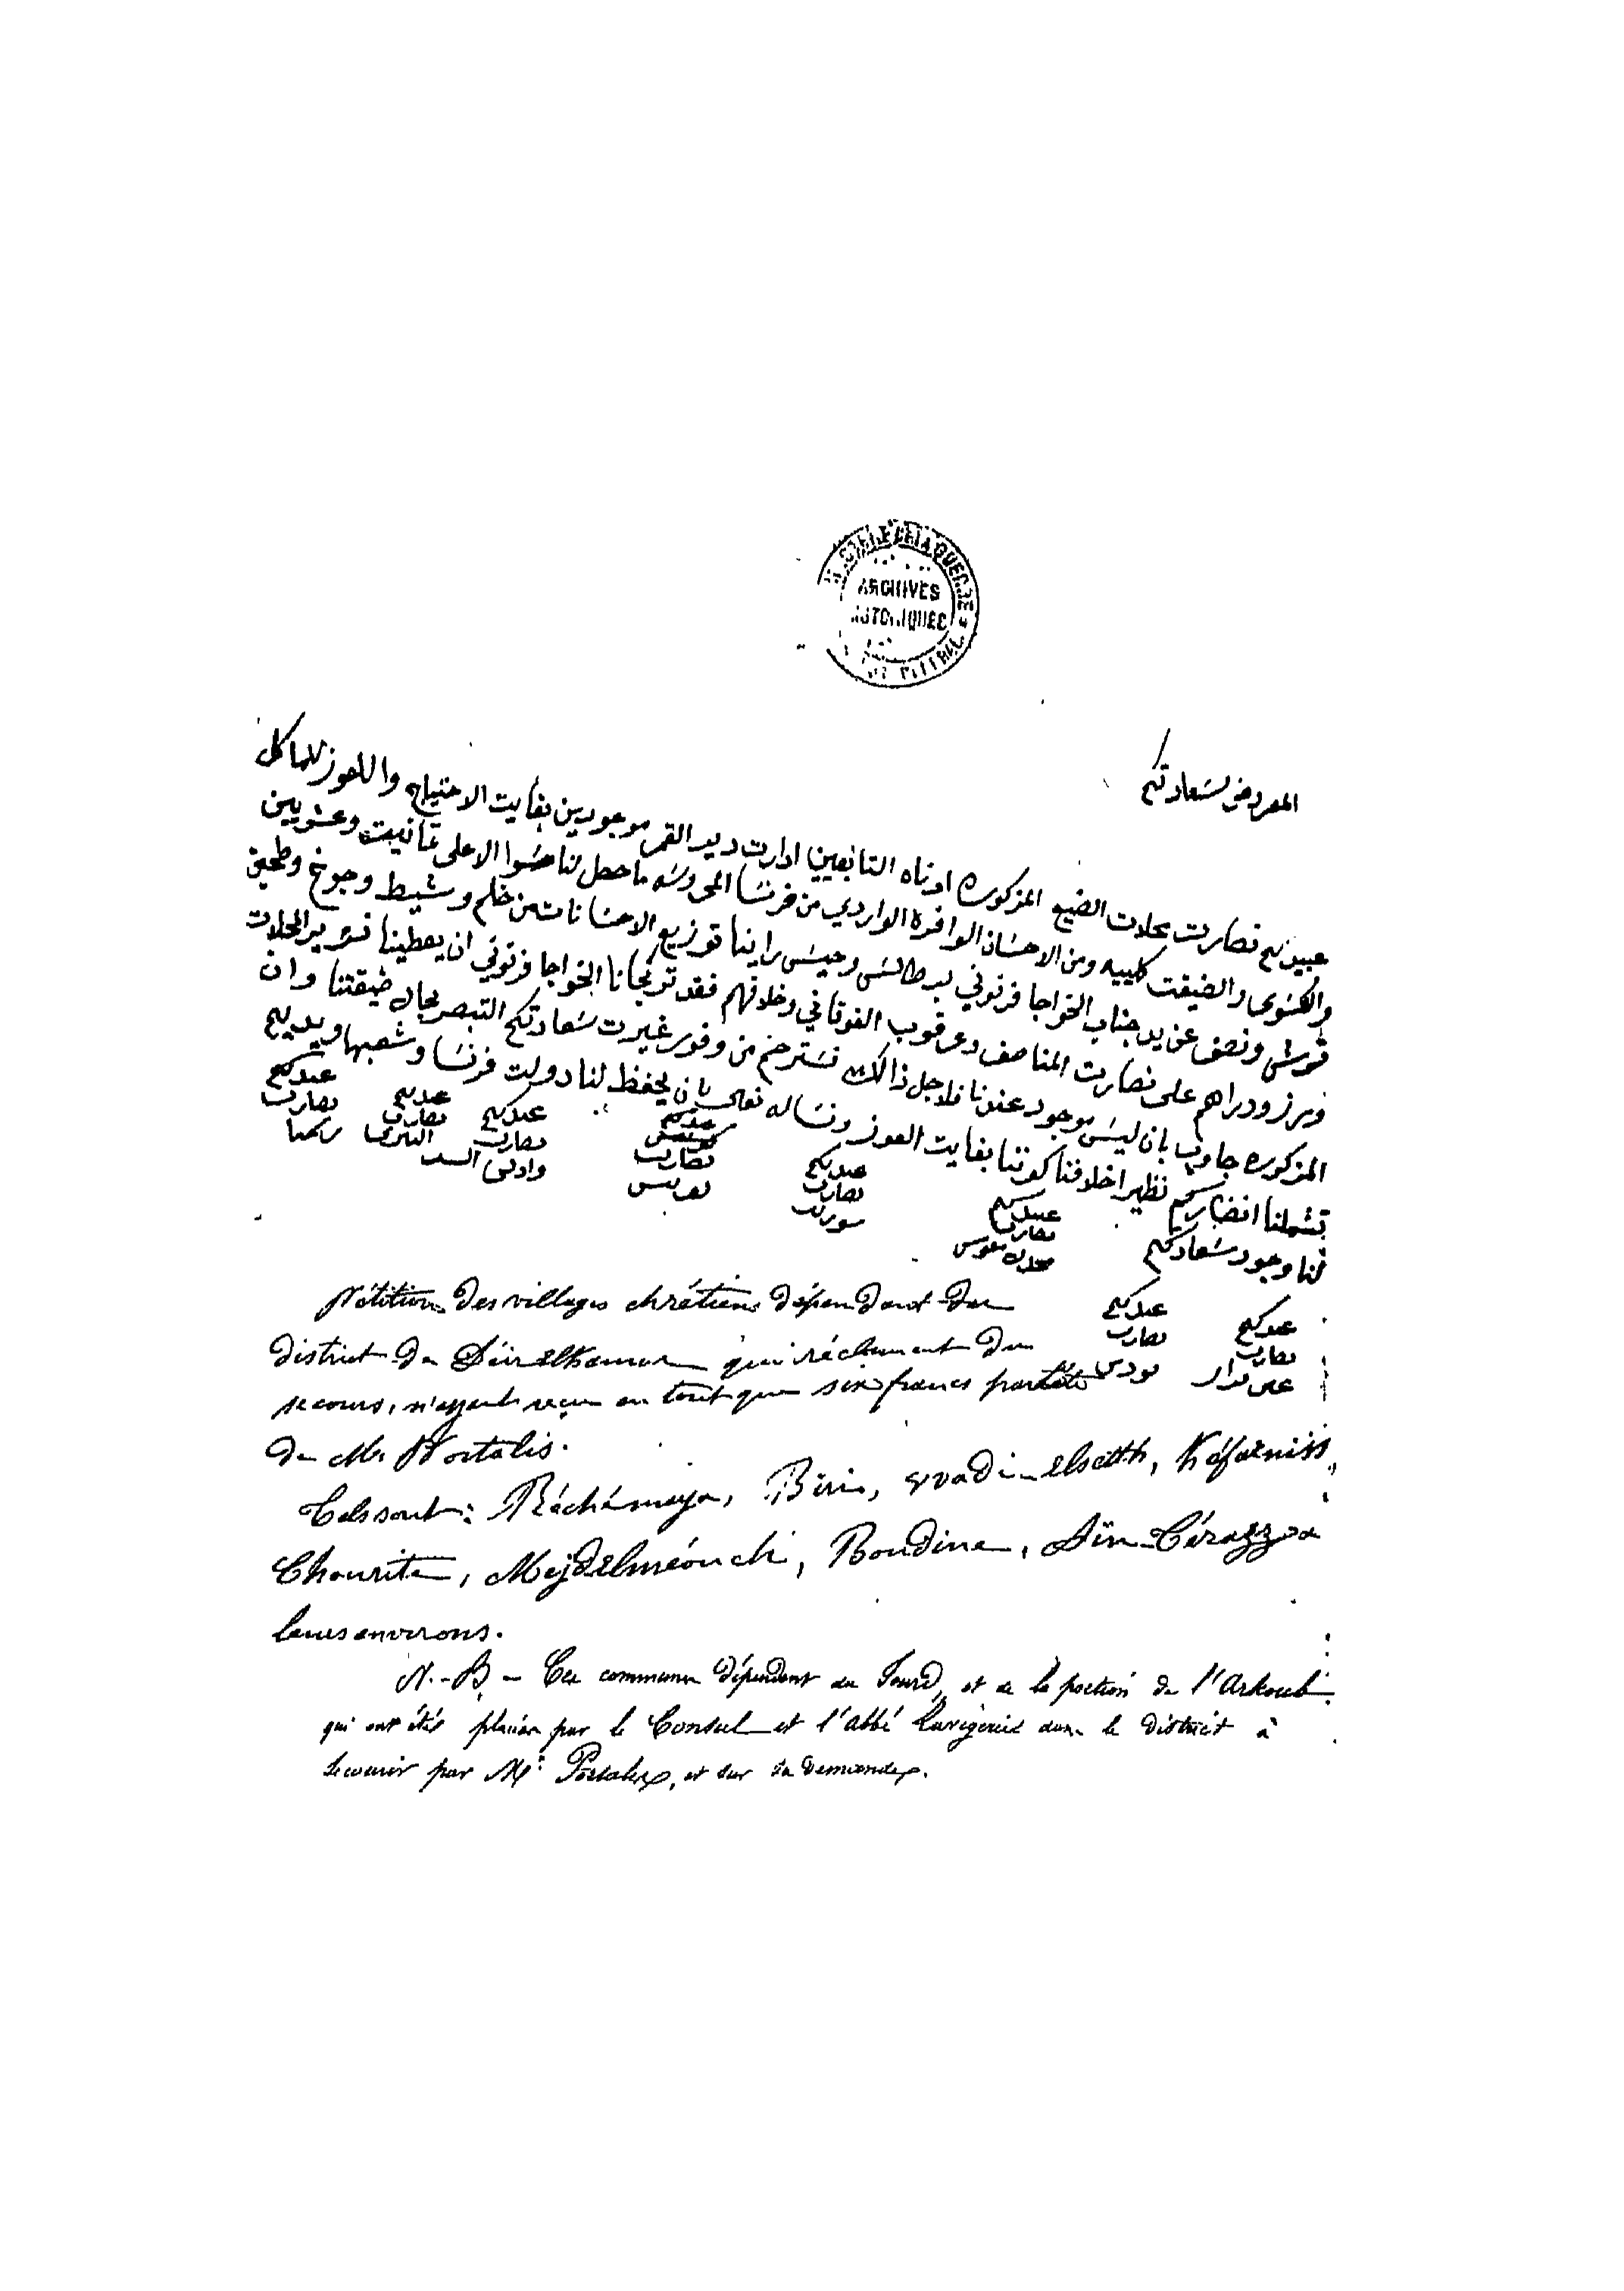 ARCHIVES
المعروض لسعادتكم
عبيدكم نصارت محلات الضيع المذكوره ادناه التابعيين ادارت دير القمر موجودين بغايت الاحتياج واللعوز للماكل
والكسوى والضيقت كلييه ومن الاحسان الوافره الواردي من فرنسا المحروسه ما حصل لنا سوا الاعلى تمانيت وعشريين
قرش ونصف عن يد جناب الخواجا فرنوني بورطالس وحيس راينا توزيع الاحسانات من خام وشيط وجوخ وطحين
ورز ودراهم على نصارت المناصف وعرقوب الفوقاني وخلافهم فقد ترجانا الخواجا فرنوني ان يعطينا نسر ير المحلات
المذكوره جاوب بان ليس موجود عندنا فلاجل ذالك نسترحم من وفور غيرت سعادتكم التبصر بحال ضيقتنا وان
تشملنا انضاركم نظير اخلافنا كوننا بغايت العوز ونساله تعالى بان يحفظ لنا دولت فرنسا وشعبها ويديم
لنا وجود سعادتكم
عبيدكم نصارت رشميا
عبيدكم نصارت البيري
عبيدكم نصارت وادي الست
عبيدكم نصارت كفرنيس
عبيدكم نصارت شوريت
عبيدكم نصارت مجدل معوش
عبيدكم نصارت بودين
عبيدكم نصارت عين تراز
Pétition des villages chrétiens dépendant du
district de Déir elkamar qui réclament du
secours, n'ayant reçu en tout que six francs par tête
de Mr Portalis.
Ce sont: Réchémaya, Biri, Ouadi-elsetth, Kéfarniss,
Chourite, Mejdelméouch, Boudine, Aïn-Térazz et
leurs environs.
N.-B. - Ces communes dépendent du Jourd, et de la portion de l'Arkoub
qui ont étés placées par le Consul et l'abbé Lavigerie dans le district à
secourir par Mr Portalis, et sur sa demande.